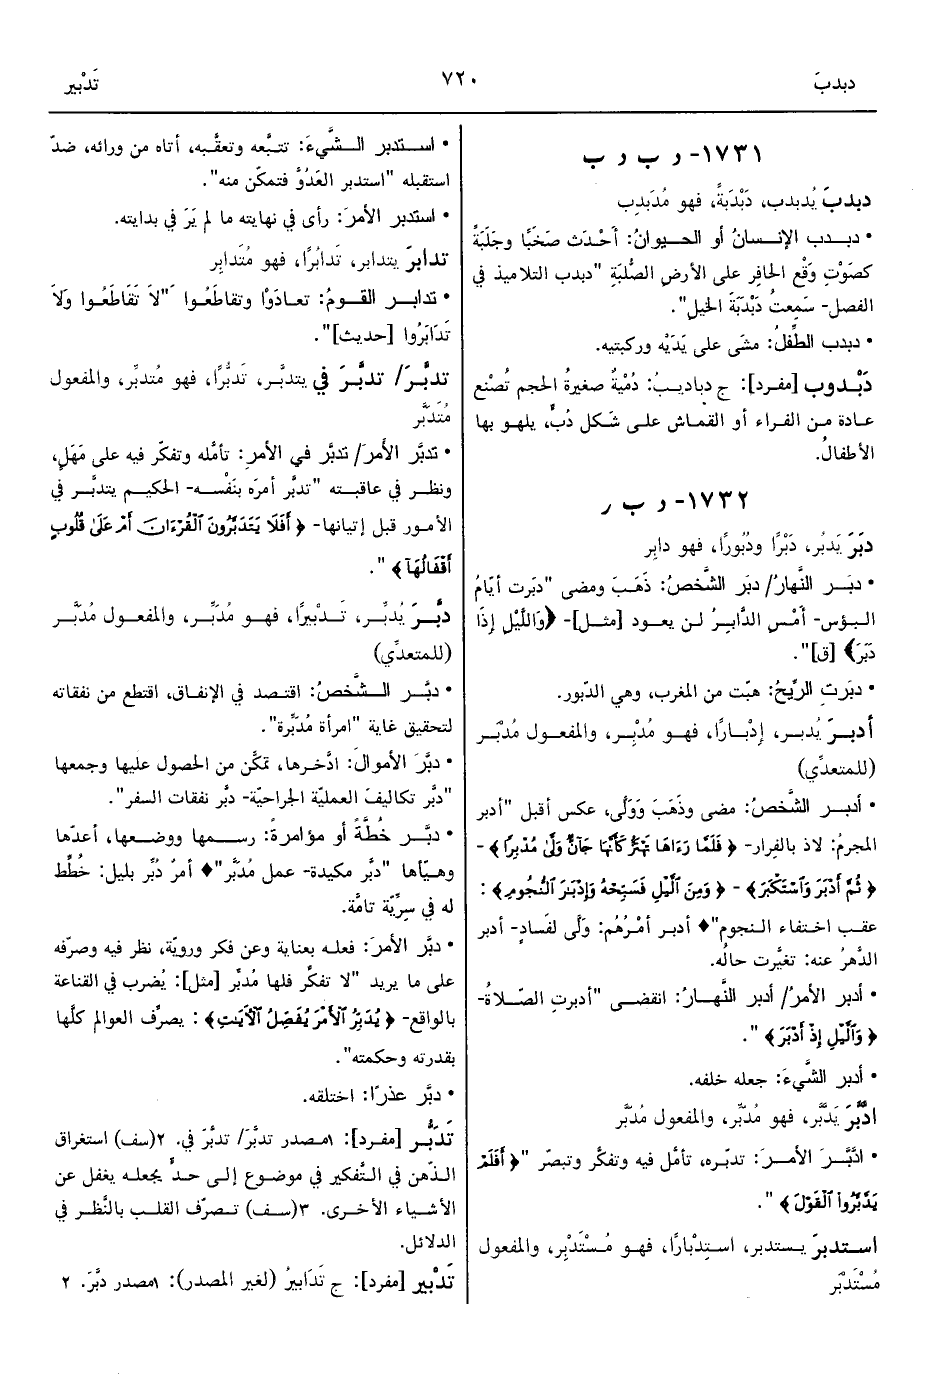 دبدبَ
٧٢٠
تَدْبير
١٧٣١- د ب د ب
دبدبَ يُدبدب، دَبْدَبةً، فهو مُدَبدِب
• دبدب الإنسانُ أو الحيوانُ: أحْدَث صَخَبًا وجَلَبَةً
كصَوْتِ وَقْع الحافِر على الأرضِ الصُّلبَةِ "دبدب التلاميذ في
الفصل- سَمِعتُ دَبْدَبَةَ الخيل".
• دبدب الطِّفلُ: مشَى على يَدَيْه وركبتيه.
دَبْدوب [مفرد]: ج دباديبُ: دُمْيةٌ صغيرةُ الحجم تُصْنع
عادة من الفراء أو القماش على شَكل دُبٍّ، يلهو بها
الأطفالُ.
١٧٣٢- د ب ر
دبَرَ يَدبُر، دَبْرًا ودُبُورًا، فهو دابِر
• دبَر النَّهارُ/ دبَر الشَّخصُ: ذَهَبَ ومضى "دبَرت أيّامُ
البؤس- أمْسِ الدَّابِرُ لن يعود [مثل]- ﴿وَاللَّيْلِ إِذَا
دَبَرَ﴾ [ق]".
• دبَرَتِ الرِّيحُ: هبّت من المغرب، وهي الدّبور.
أدبرَ يُدبر، إدْبارًا، فهو مُدْبِر، والمفعول مُدْبَر
(للمتعدِّي)
• أدبر الشَّخصُ: مضى وذَهَبَ وَوَلَّى، عكس أقبل "أدبر
المجرمُ: لاذ بالفِرار- ﴿فَلَمَّا رَءَاهَا تَهْتَزُّ كَأَنَّهَا جَآنٌّ وَلَّى مُدْبِرًا﴾-
﴿ثُمَّ أَدْبَرَ وَٱسْتَكْبَرَ﴾- ﴿وَمِنَ ٱلَّيْلِ فَسَبِّحْهُ وَإِدْبَٰرَ ٱلنُّجُومِ﴾:
عقب اختفاء النجوم"♦ أدبر أمْرُهُم: وَلَّى لفَسادٍ- أدبر
الدَّهرُ عنه: تغيَّرت حالُه.
• أدبر الأمرُ/ أدبر النَّهارُ: انقضى "أدبرتِ الصّلاةُ-
﴿وَٱلَّيْلِ إِذْ أَدْبَرَ﴾".
• أدبر الشَّيءَ: جعله خلفه.
ادَّبَّرَ يَدَّبَّر، فهو مُدَّبِّر، والمفعول مُدَّبَّر
• ادَّبَّرَ الأمرَ: تدبّره، تأمَّل فيه وتفكَّر وتبصّر "﴿أَفَلَمْ
يَدَّبَّرُواْ ٱلْقَوْلَ﴾".
استدبرَ يستدبر، استِدْبارًا، فهو مُسْتَدْبِر، والمفعول
مُسْتَدْبَر
• استدبر الشَّيءَ: تتبَّعه وتعقَّبه، أتاه من ورائه، ضدّ
استقبله "استدبر العَدُوَّ فتمكّن منه".
• استدبر الأمرَ: رأى في نهايته ما لم يَرَ في بدايته.
تدابرَ يتدابر، تَدابُرًا، فهو مُتَدابِر
• تدابر القومُ: تعادَوْا وتقاطَعُوا "لاَ تَقَاطَعُوا وَلاَ
تَدَابَرُوا [حديث]".
تدبَّرَ/ تدبَّرَ في يتدبَّر، تَدبُّرًا، فهو مُتدبِّر، والمفعول
مُتَدبَّر
• تدبَّر الأَمرَ/ تدبَّر في الأمرِ: تأمَّله وتفكّر فيه على مَهَلٍ،
ونظر في عاقبته "تدبَّر أمرَه بنَفْسه- الحكيم يتدبَّر في
الأمور قبل إتيانها- ﴿أَفَلَا يَتَدَبَّرُونَ ٱلْقُرْءَانَ أَمْ عَلَىٰ قُلُوبٍ
أَقْفَالُهَآ﴾".
دبَّرَ يُدبِّر، تَدْبيرًا، فهو مُدَبِّر، والمفعول مُدَبَّر
(للمتعدِّي)
• دبَّر الشَّخصُ: اقتصد في الإنفاق، اقتطع من نفقاته
لتحقيق غاية "امرأة مُدَبِّرة".
• دبَّرَ الأموالَ: ادَّخرها، تمكَّن من الحصول عليها وجمعها
"دبَّر تكاليفَ العمليّة الجراحيّة- دبَّر نفقات السفر".
• دبَّر خُطَّةً أو مؤامرةً: رسمها ووضعها، أعدّها
وهيّأها "دبَّر مكيدة- عمل مُدبَّر"♦ أمرٌ دُبِّر بليل: خُطِّط
له في سِرِّيَّة تامَّة.
• دبَّر الأمرَ: فعله بعناية وعن فكر ورويّة، نظر فيه وصرّفه
على ما يريد "لا تفكِّر فلها مُدبِّر [مثل]: يُضرب في القناعة
بالواقع- ﴿يُدَبِّرُ ٱلْأَمْرَ يُفَصِّلُ ٱلْأَيَٰتِ﴾: يصرِّف العوالم كلَّها
بقدرته وحكمته".
• دبَّر عذرًا: اختلقه.
تَدَبُّر [مفرد]: ١مصدر تدبَّرَ/ تدبَّرَ في. ٢(سف) استغراق
الذّهن في التَّفكير في موضوع إلى حدٍّ يجعله يغفل عن
الأشياء الأخرى. ٣(سف) تصرّف القلب بالنَّظر في
الدلائل.
تَدْبير [مفرد]: ج تَدَابيرُ (لغير المصدر): ١مصدر دبَّرَ. ٢